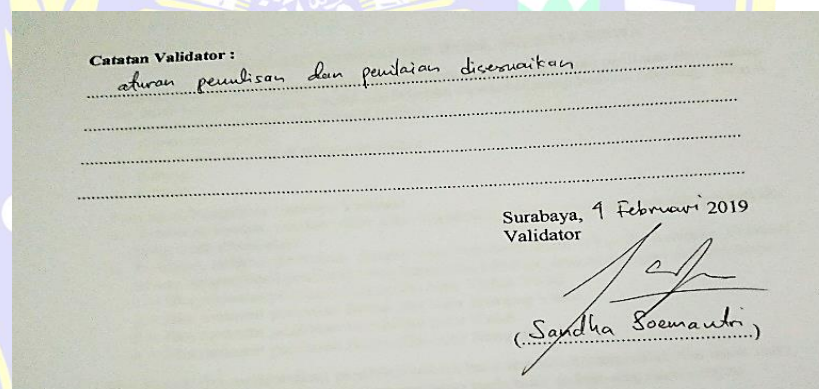 Catatan Validator :
aturan penulisan dan penilaian disesuaikan
Surabaya, 4 Februari 2019
Validator
(Sandha Soemantri)